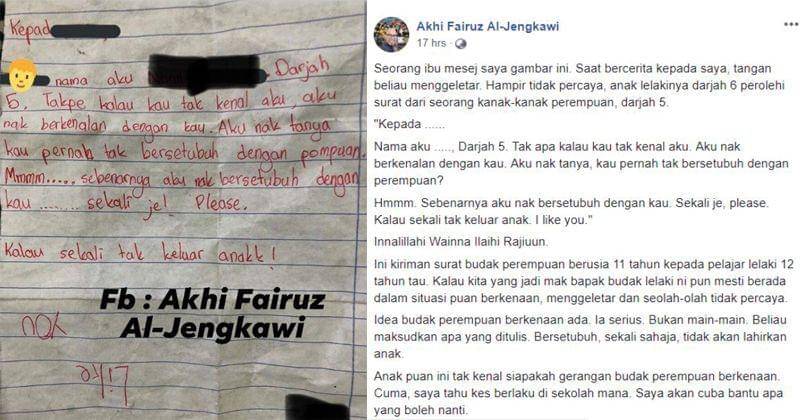 Kepad
nama aku Darjah
5. Takpe kalau kau tak kenal aku, aku
nak berkenalan dengan kau. Aku nak tanya
kau pernah tak bersetubuh dengan pompuan.
Mmmm..... sebenarnya aku nak bersetubuh dengan
kau ........ sekali je! Please.
Kalau sekali tak keluar anakk!
Fb : Akhi Fairuz
Al-Jengkawi
Akhi Fairuz Al-Jengkawi
17 hrs ·
Seorang ibu mesej saya gambar ini. Saat bercerita kepada saya, tangan
beliau menggeletar. Hampir tidak percaya, anak lelakinya darjah 6 perolehi
surat dari seorang kanak-kanak perempuan, darjah 5.
"Kepada ......
Nama aku ....., Darjah 5. Tak apa kalau kau tak kenal aku. Aku nak
berkenalan dengan kau. Aku nak tanya, kau pernah tak bersetubuh dengan
perempuan?
Hmmm. Sebenarnya aku nak bersetubuh dengan kau. Sekali je, please.
Kalau sekali tak keluar anak. I like you."
Innalillahi Wainna Ilaihi Rajiuun.
Ini kiriman surat budak perempuan berusia 11 tahun kepada pelajar lelaki 12
tahun tau. Kalau kita yang jadi mak bapak budak lelaki ni pun mesti berada
dalam situasi puan berkenaan, menggeletar dan seolah-olah tidak percaya.
Idea budak perempuan berkenaan ada. Ia serius. Bukan main-main. Beliau
maksudkan apa yang ditulis. Bersetubuh, sekali sahaja, tidak akan lahirkan
anak.
Anak puan ini tak kenal siapakah gerangan budak perempuan berkenaan.
Cuma, saya tahu kes berlaku di sekolah mana. Saya akan cuba bantu apa
yang boleh nanti.